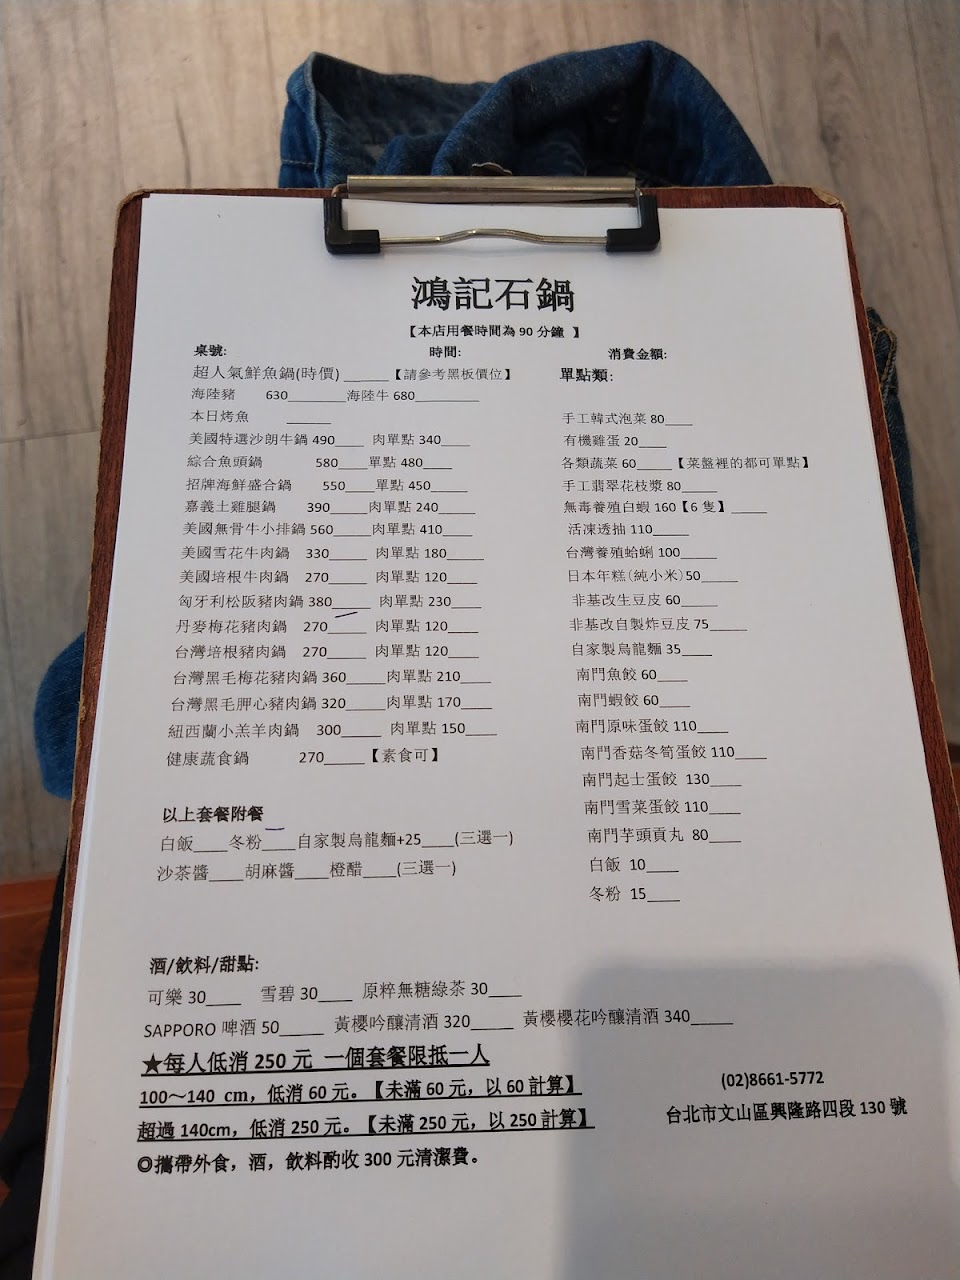 鴻記石鍋
【本店用餐時間為 90 分鐘 】
桌號: 時間: 消費金額:
超人氣鮮魚鍋(時價) ______【請參考黑板價位】
海陸豬 630________海陸牛 680_________
本日烤魚 ______
美國特選沙朗牛鍋 490____ 肉單點 340____
綜合魚頭鍋 580____單點 480____
招牌海鮮盛合鍋 550____單點 450_____
嘉義土雞腿鍋 390_____肉單點 240_____
美國無骨牛小排鍋 560_____肉單點 410____
美國雪花牛肉鍋 330_____ 肉單點 180_____
美國培根牛肉鍋 270_____ 肉單點 120____
匈牙利松阪豬肉鍋 380_____ 肉單點 230____
丹麥梅花豬肉鍋 270_____ 肉單點 120____
台灣培根豬肉鍋 270_____ 肉單點 120____
台灣黑毛梅花豬肉鍋 360_____肉單點 210____
台灣黑毛胛心豬肉鍋 320_____肉單點 170____
紐西蘭小羔羊肉鍋 300_____ 肉單點 150____
健康蔬食鍋 270_____【素食可】
以上套餐附餐
白飯____冬粉____自家製烏龍麵+25____(三選一)
沙茶醬____胡麻醬____橙醋____(三選一)
單點類:
手工韓式泡菜 80____
有機雞蛋 20____
各類蔬菜 60_____【菜盤裡的都可單點】
手工翡翠花枝漿 80_____
無毒養殖白蝦 160【6 隻】_____
活凍透抽 110_____
台灣養殖蛤蜊 100_____
日本年糕(純小米)50_____
非基改生豆皮 60_____
非基改自製炸豆皮 75_____
自家製烏龍麵 35____
南門魚餃 60____
南門蝦餃 60____
南門原味蛋餃 110____
南門香菇冬筍蛋餃 110____
南門起士蛋餃 130____
南門雪菜蛋餃 110____
南門芋頭貢丸 80____
白飯 10____
冬粉 15____
酒/飲料/甜點:
可樂 30____ 雪碧 30____ 原粹無糖綠茶 30____
SAPPORO 啤酒 50_____ 黃櫻吟釀清酒 320_____ 黃櫻櫻花吟釀清酒 340_____
★每人低消 250 元 一個套餐限抵一人
100～140 cm，低消 60 元。【未滿 60 元，以 60 計算】
超過 140cm，低消 250 元。【未滿 250 元，以 250 計算】
◎攜帶外食，酒，飲料酌收 300 元清潔費。
(02)8661-5772
台北市文山區興隆路四段 130 號